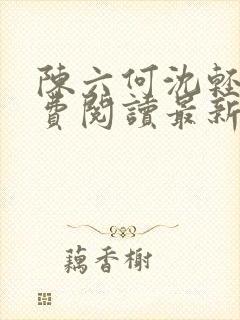 陳六何沈輕
費閱讀最新
藕香榭